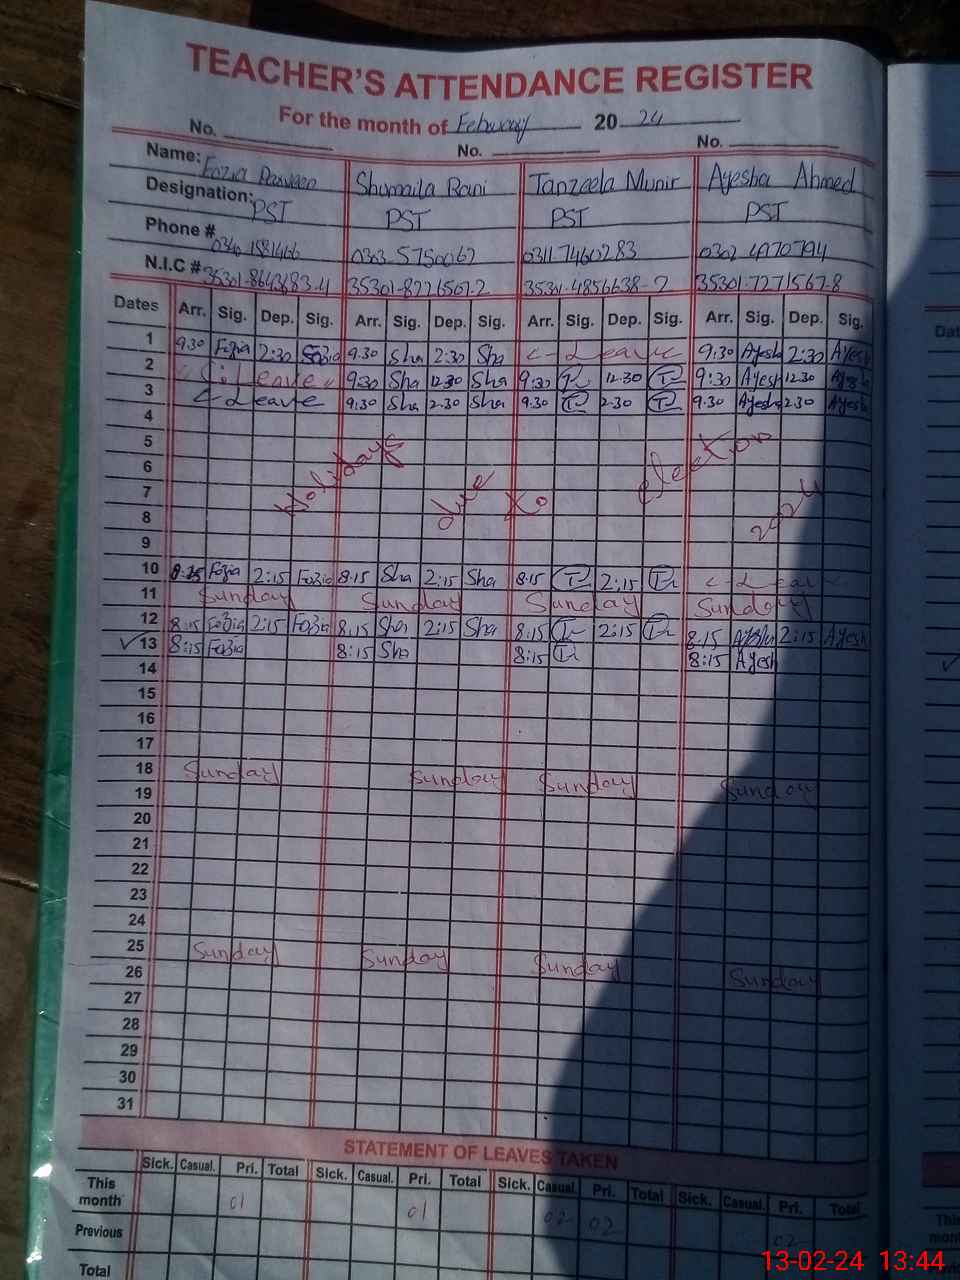 TEACHER'S ATTENDANCE REGISTER
For the month of February 20 24
No. No. No.
Name: Fozia Parveen Shumaila Rani Tanzeela Munir Ayesha Ahmed
Designation: PST PST PST PST
Phone # 0340 1581466 0303 5750062 0311 7460283 0302 4970794
N.I.C # 35301-8643683-4 35301-8221507-2 35301-4856638-2 35301-7271567-8
Dates Arr. Sig. Dep. Sig. Arr. Sig. Dep. Sig. Arr. Sig. Dep. Sig. Arr. Sig. Dep. Sig.
1 9.30 Fozia 2:30 Fozia 9.30 Sha 2:30 Sha C-Leave 9:30 Ayesh 2:30 Ayesh
2 Leave 9:30 Sha 12.30 Sha 9:30 12.30 9:30 Ayesh 12.30 Ayesh
3 C-Leave 9.30 Sha 2.30 Sha 9.30 2.30 9.30 Ayesh 2.30 Ayesh
4
5
6
Holidays due to election 2024
7
8
9
10 8.15 Fozia 2:15 Fozia 8.15 Sha 2:15 Sha 8.15 2:15 C-Leave
11 Sunday Sunday Sunday Sunday
12 8:15 Fozia 2:15 Fozia 8.15 Sha 2:15 Sha 8:15 2:15 8:15 Ayesh 2:15 Ayesh
13 8:15 Fozia 8:15 Sha 8:15 8:15 Ayesh
14
15
16
17
18 Sunday Sunday Sunday Sunday
19
20
21
22
23
24
25 Sunday Sunday Sunday Sunday
26
27
28
29
30
31
STATEMENT OF LEAVES TAKEN
Sick. Casual. Pri. Total Sick. Casual. Pri. Total Sick. Casual. Pri. Total Sick. Casual. Pri. Total
This month 01 01 02 02 02
Previous
Total
Dat
This
mon
13-02-24 13:44